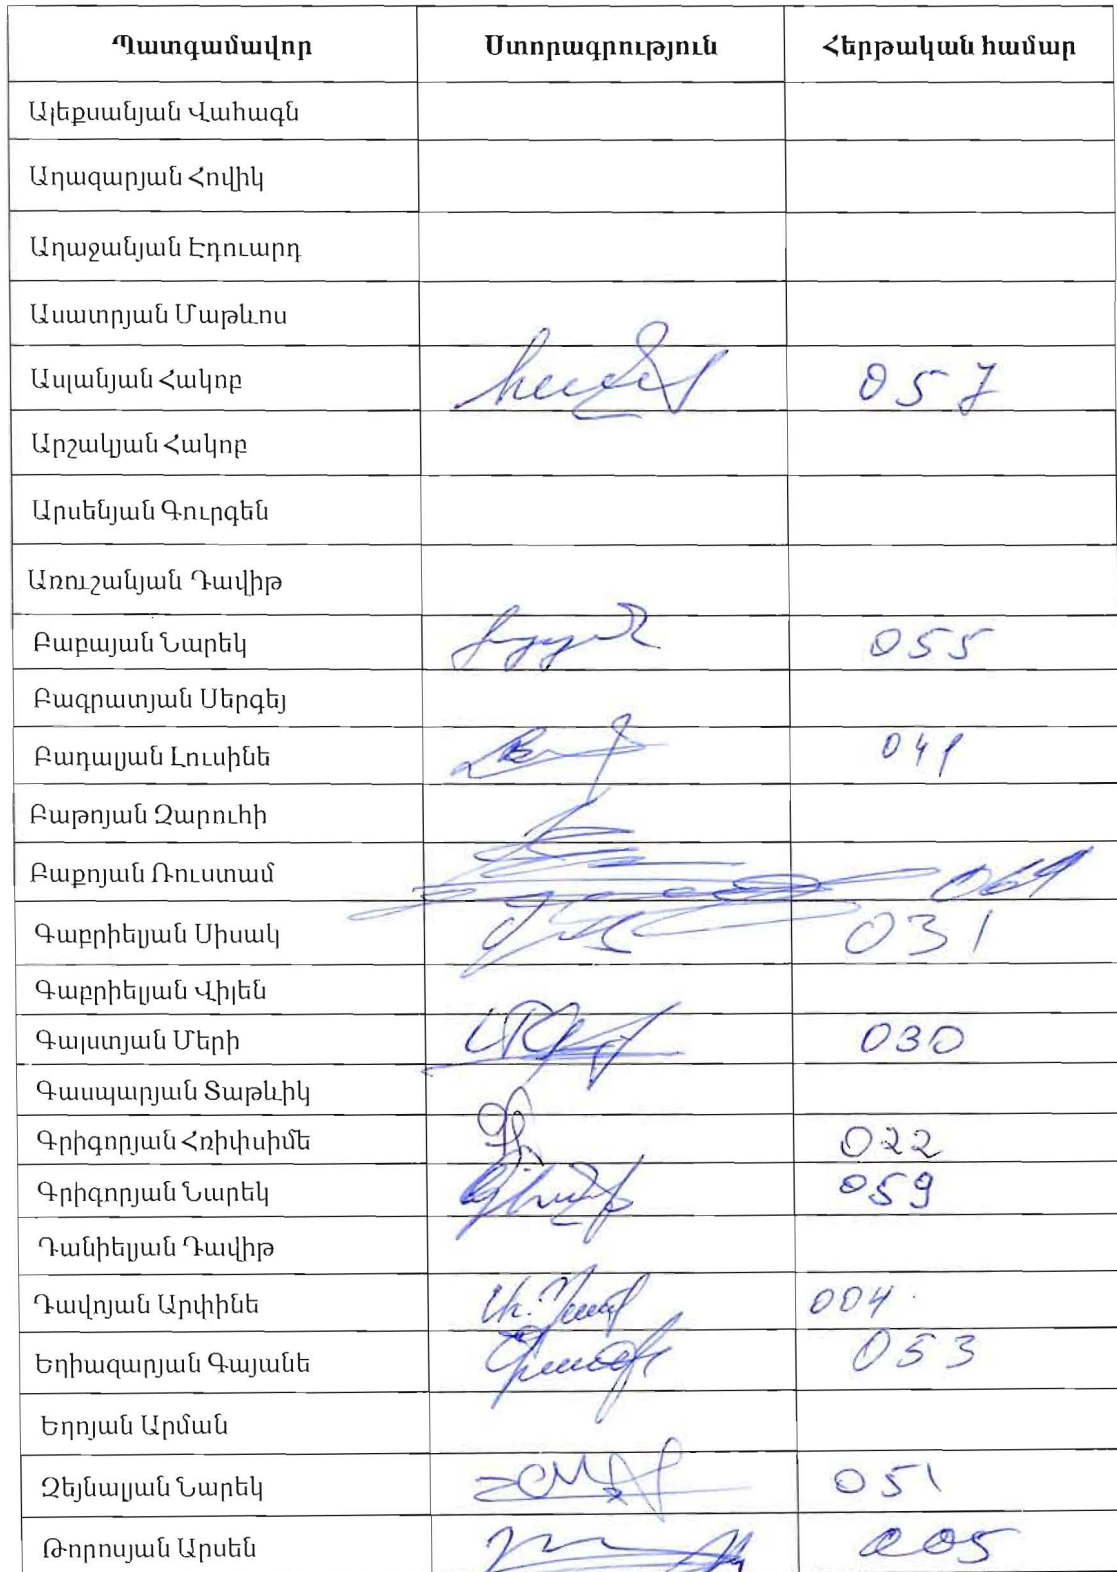 Պատգամավոր Ստորագրություն Հերթական համար
Ալեքսանյան Վահագն
Աղազարյան Հովիկ
Աղաջանյան Էդուարդ
Ասատրյան Մաթևոս
Ասլանյան Հակոբ 057
Արշակյան Հակոբ
Արսենյան Գուրգեն
Առուշանյան Դավիթ
Բաբայան Նարեկ 055
Բագրատյան Սերգեյ
Բադալյան Լուսինե 041
Բաթոյան Զարուհի
Բաքոյան Ռուստամ
Գաբրիելյան Սիսակ 031
Գաբրիելյան Վիլեն
Գալստյան Մերի 030
Գասպարյան Տաթևիկ
Գրիգորյան Հռիփսիմե 022
Գրիգորյան Նարեկ 059
Դանիելյան Դավիթ
Դավոյան Արփինե 004
Եղիազարյան Գայանե 053
Եղոյան Արման
Զեյնալյան Նարեկ 051
Թորոսյան Արսեն 005